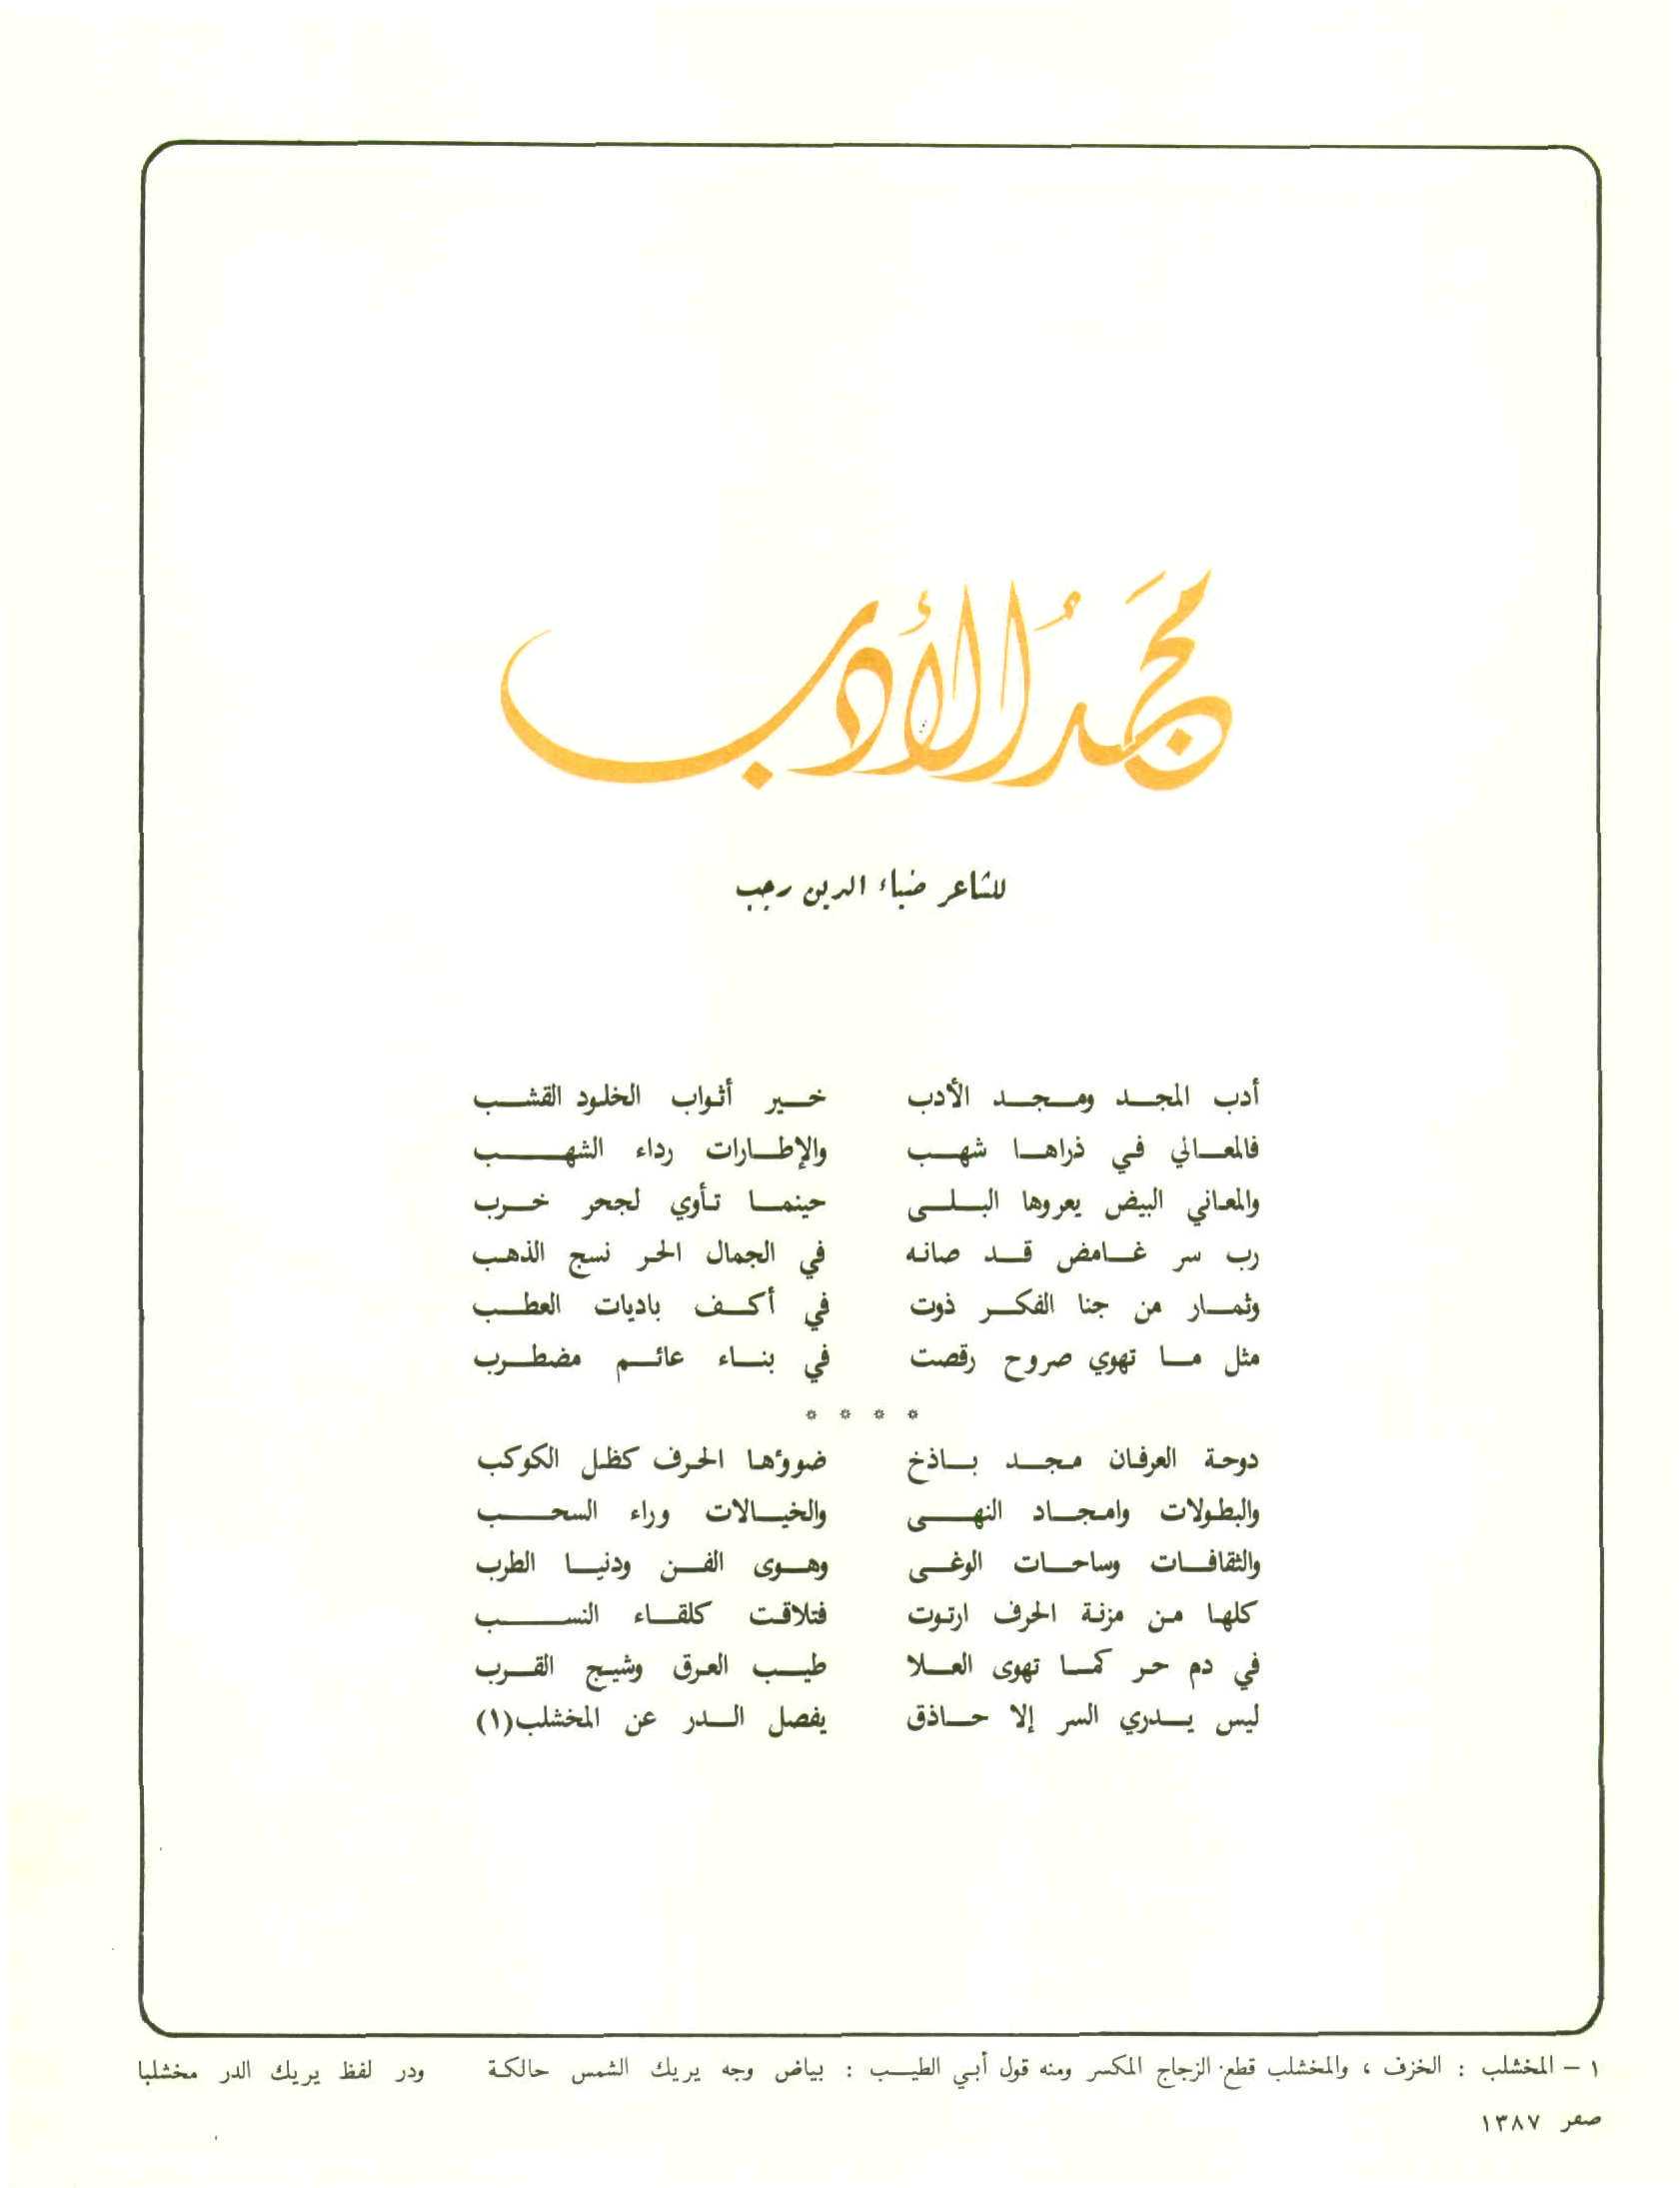 مَجْدُ الأَدب
للشاعر ضياء الدين رجب
أدب المجد ومجد الأدب    خير أثواب الخلود القشب
فالمعالي في ذراها شهب    والإطارات رداء الشهب
والمعاني البيض يعروها البلى    حينما تأوي لجحر خرب
رب سر غامض قد صانه    في الجمال الحر نسج الذهب
وثمار من جنا الفكر ذوت    في أكف باديات العطب
مثل ما تهوي صروح رقصت    في بناء عائم مضطرب
* * * *
دوحة العرفان مجد باذخ    ضووءها الحرف كظل الكوكب
والبطولات وامجاد النهى    والخيالات وراء السحب
والثقافات وساحات الوغى    وهوى الفن ودنيا الطرب
كلها من مزنة الحرف ارتوت    فتلاقت كلقاء النسب
في دم حر كما تهوى العلا    طيب العرق وشيج القرب
ليس يدري السر إلا حاذق    يفصل الدر عن المخشلب(١)
١ – المخشلب : الخزف ، والمخشلب قطع الزجاج المكسر ومنه قول أبي الطيب : بياض وجه يريك الشمس حالكة    ودر لفظ يريك الدر مخشلبا
صفر ١٣٨٧